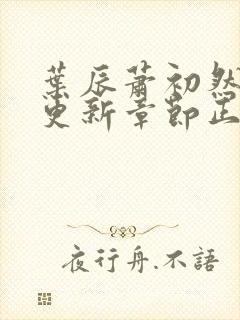 葉辰蕭初然
更新章節正
夜行舟.不語